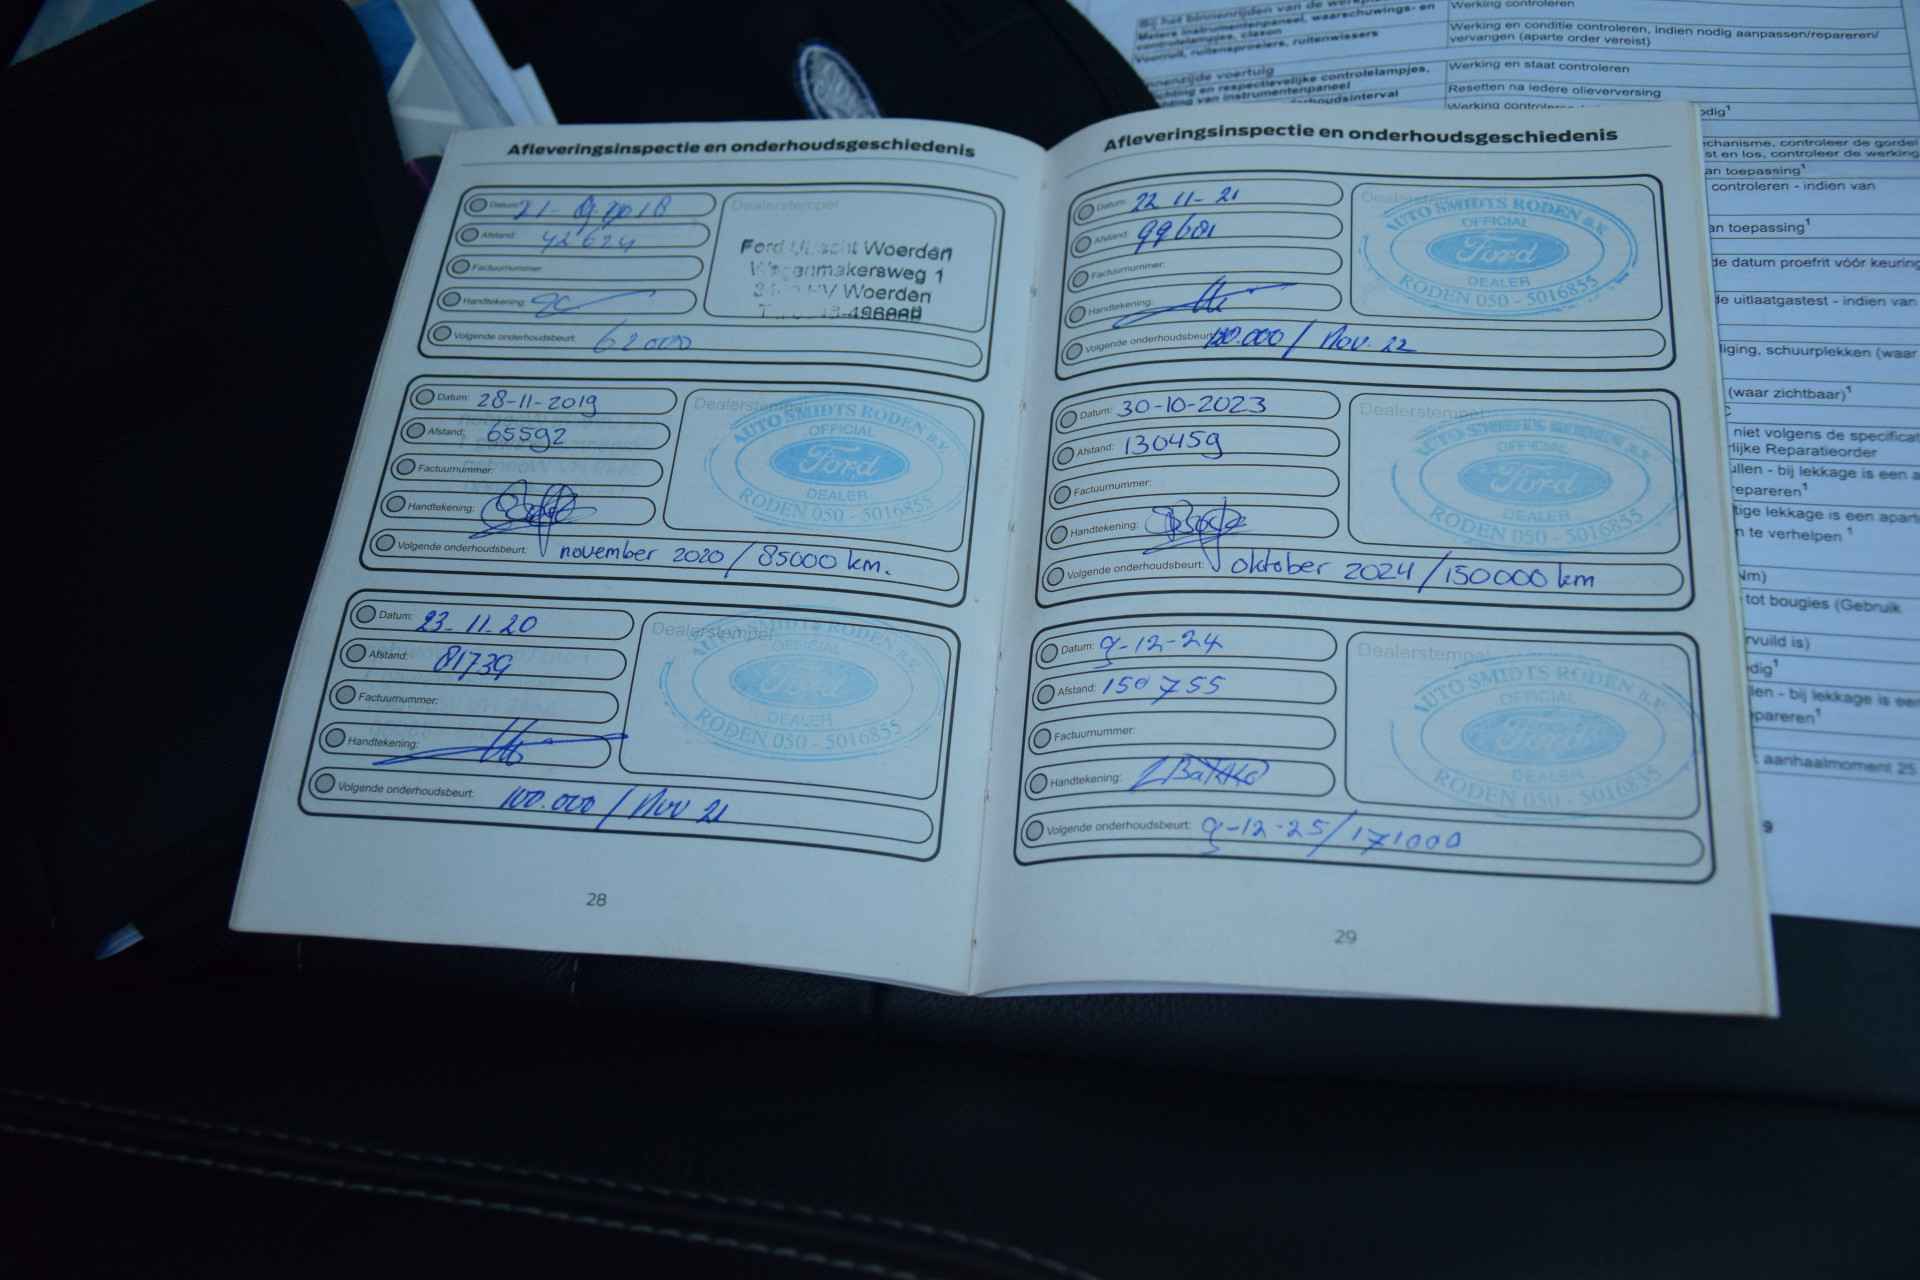 Afleveringsinspectie en onderhoudsgeschiedenis
Datum:
Afstand: 42624
Factuurnummer:
Handtekening:
Volgende onderhoudsbeurt: 62000
Dealerstempel
Ford Utrecht Woerden
Wagenmakersweg 1
Woerden
Datum: 28-11-2019
Afstand: 65592
Factuurnummer:
Handtekening:
Volgende onderhoudsbeurt: november 2020 / 85000 km.
Dealerstempel
AUTO SMIDTS RODEN B.V.
OFFICIAL
Ford
DEALER
RODEN 050 - 5016855
Datum: 23-11-20
Afstand: 81739
Factuurnummer:
Handtekening:
Volgende onderhoudsbeurt: 100.000 / Nov 21
Dealerstempel
AUTO SMIDTS RODEN B.V.
OFFICIAL
Ford
DEALER
RODEN 050 - 5016855
28
Afleveringsinspectie en onderhoudsgeschiedenis
Datum: 22 11-21
Afstand: 99601
Factuurnummer:
Handtekening:
Volgende onderhoudsbeurt: 120.000 / Nov. 22
Dealerstempel
AUTO SMIDTS RODEN B.V.
OFFICIAL
Ford
DEALER
RODEN 050 - 5016855
Datum: 30-10-2023
Afstand: 130459
Factuurnummer:
Handtekening:
Volgende onderhoudsbeurt: oktober 2024 / 150000 km
Dealerstempel
AUTO SMIDTS RODEN B.V.
OFFICIAL
Ford
DEALER
RODEN 050 - 5016855
Datum: 9-12-24
Afstand: 150755
Factuurnummer:
Handtekening:
Volgende onderhoudsbeurt: 9-12-25 / 171000
Dealerstempel
AUTO SMIDTS RODEN B.V.
OFFICIAL
Ford
DEALER
RODEN 050 - 5016855
29
Bij het binnenrijden van de
Meters instrumentenpaneel, waarschuwings- en
controlelampjes, claxon
Voorruit, ruitensproeiers, ruitenwissers
Werking controleren
Werking en conditie controleren, indien nodig aanpassen/repareren/
vervangen (aparte order vereist)
voertuig
en respectievelijke controlelampjes,
van instrumentenpaneel
Werking en staat controleren
Resetten na iedere olieverversing
Werking
controleer de gordel
st en los, controleer de werking
an toepassing¹
controleren - indien van
an toepassing¹
de datum proefrit vóór keuring
de uitlaatgastest - indien van
schuurplekken (waar
(waar zichtbaar)¹
niet volgens de
Reparatieorder
- bij lekkage is een
lekkage is een
te verhelpen ¹
tot bougies (Gebruik
is)
- bij lekkage is een
aanhaalmoment 25
9